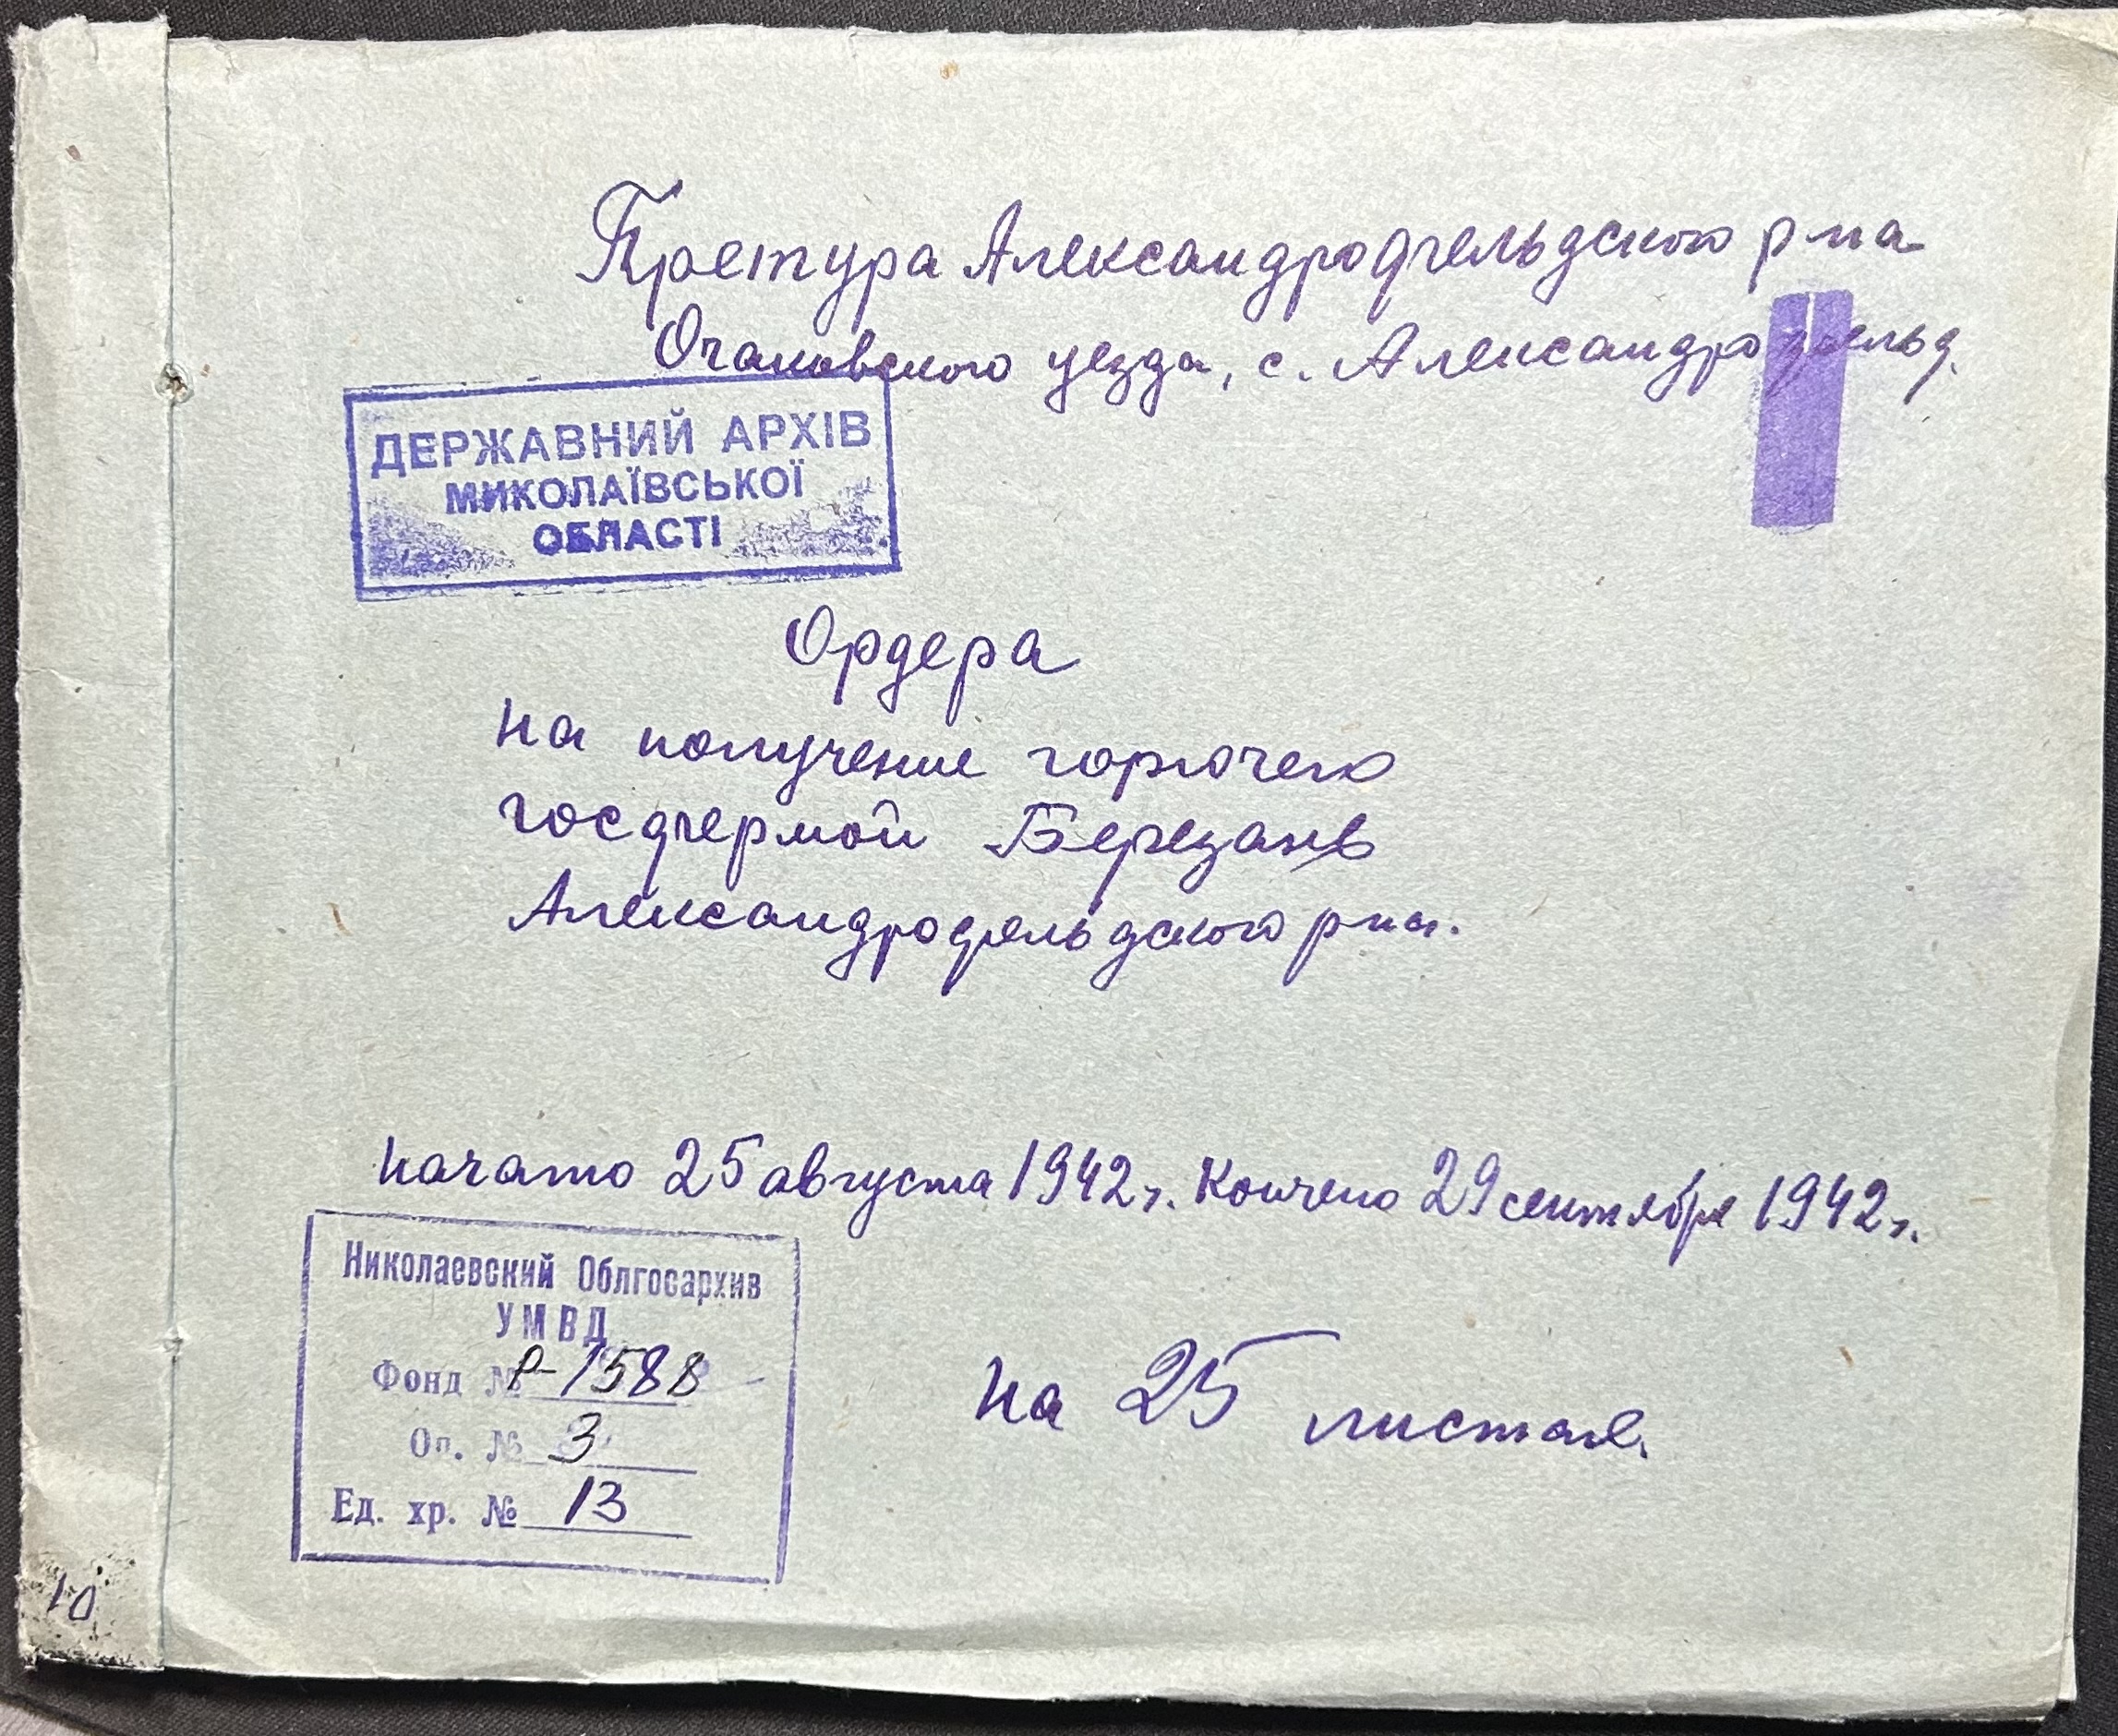 Претура Александрофельдского р-на
Очаковского уезда, с. Александрофельд.
ДЕРЖАВНИЙ АРХІВ
МИКОЛАЇВСЬКОЇ
ОБЛАСТІ
Ордера
на получение горючего
госфермой Березань
Александрофельдского р-на.
Начато 25 августа 1942 г. Кончено 29 сентября 1942 г.
Николаевский Облгосархив
УМВД
Фонд № Р-1588
Оп. № 3
Ед. хр. № 13
На 25 листах.
10